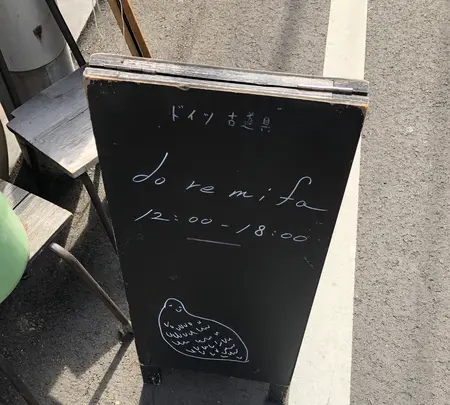 ドイツ 古道具
do re mi fa
12:00-18:00